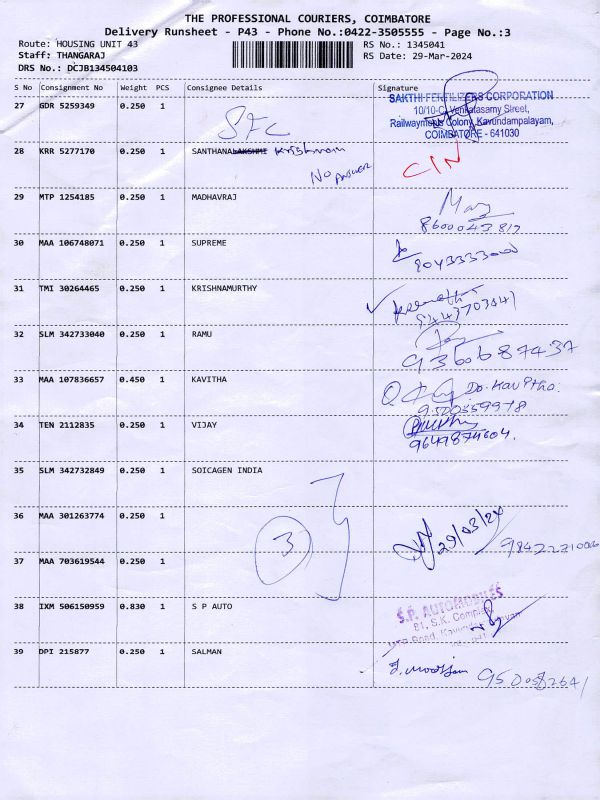 THE PROFESSIONAL COURIERS, COIMBATORE
Delivery Runsheet - P43 - Phone No.:0422-3505555 - Page No.:3
Route: HOUSING UNIT 43 RS No.: 1345041
Staff: THANGARAJ RS Date: 29-Mar-2024
DRS No.: DCJB134504103
S No Consignment No Weight PCS Consignee Details Signature
27 GDR 5259349 0.250 1 SFC
SAKTHI FERTILIZERS CORPORATION
10/10-C, Venkatasamy Street,
Railwaymens Colony, Kavundampalayam,
COIMBATORE - 641030
28 KRR 5277170 0.250 1 SANTHANALAKSHMI Krishnan
No Answer
29 MTP 1254185 0.250 1 MADHAVRAJ
8600043817
30 MAA 106748071 0.250 1 SUPREME
31 TMI 30264465 0.250 1 KRISHNAMURTHY
32 SLM 342733040 0.250 1 RAMU
9360687437
33 MAA 107836657 0.450 1 KAVITHA
9520559978
34 TEN 2112835 0.250 1 VIJAY
9649874604.
35 SLM 342732849 0.250 1 SOICAGEN INDIA
36 MAA 301263774 0.250 1
3
29/03/24
37 MAA 703619544 0.250 1
38 IXM 506150959 0.830 1 S P AUTO
S.P. AUTOMOBILES
81, S.K. Complex
39 DPI 215877 0.250 1 SALMAN
9500582641